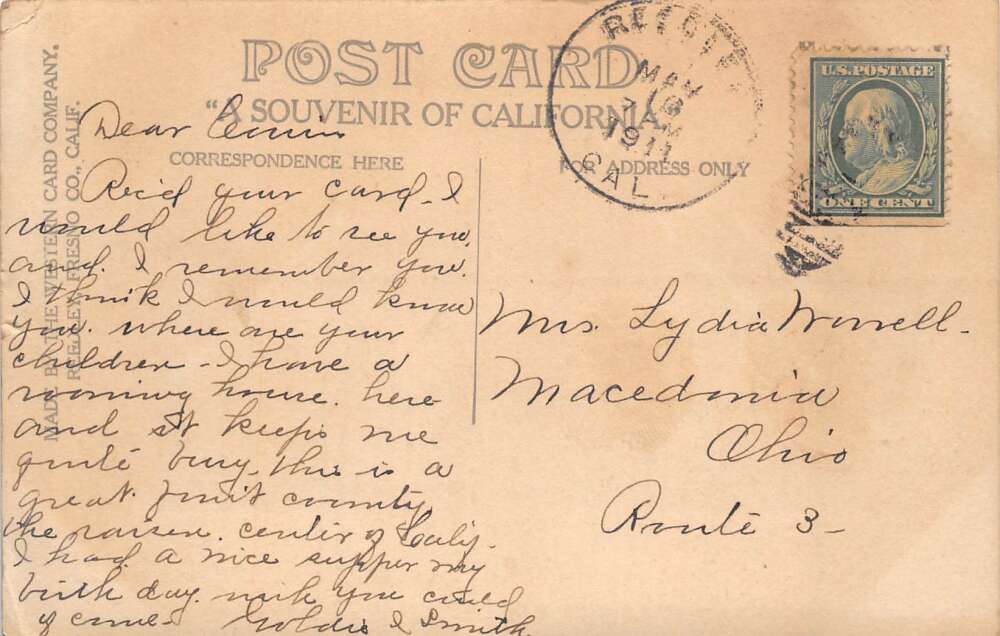 POST CARD
"A SOUVENIR OF CALIFORNIA"
CORRESPONDENCE HERE
FOR ADDRESS ONLY
MADE BY THE WESTERN CARD COMPANY,
REEDLEY, FRESNO CO., CALIF.
MAY
1911
CAL.
U.S. POSTAGE
ONE CENT
Dear
Rec'd your card. I
would like to see you
and. I remember you.
I think I would know
you. where are your
children - I have a
rooming house. here
and it keeps me
quite busy. this is a
great fruit county.
the raisen center of Calif.
I had a nice supper my
birth day. wish you could
of come - Goldie I Smith
Mrs. Lydia Worrell.
Macedonia
Ohio
Route 3-